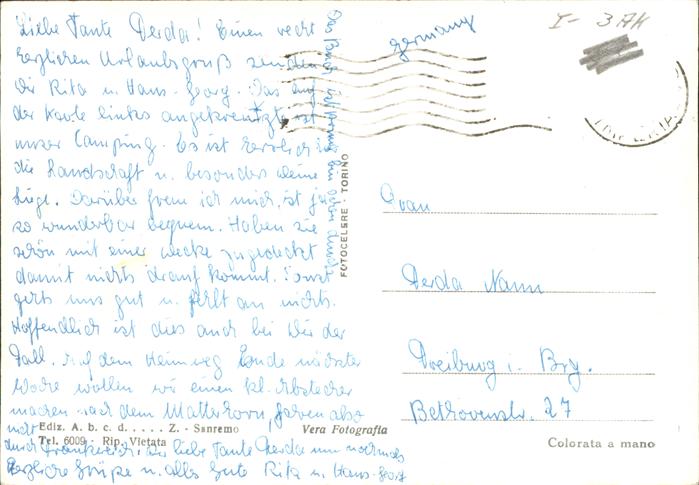 Liebe Tante Gerda! Einen recht
herzlichen Urlaubsgruß senden
dir Rita u. Hans-Georg. Das auf
der Karte links angekreuzte ist
unser Camping. Es ist herrlich
die Landschaft u. besonders deine
Liege. Darüber freu ich mich, ist ja
so wunderbar bequem. Haben sie
schön mit einer Decke zugedeckt
damit nichts drauf kommt. Sonst
gehts uns gut u. fehlt an nichts.
Hoffendlich ist dies auch bei Dir der
Fall. Auf dem Heimweg Ende nächster
Woche wollen wir einen kl. Abstecher
machen nach dem Matterhorn, fahren also
nicht
durch Frankreich. Dir liebe Tante Gerda nun nochmals
herzliche Grüße u. alles Gute Rita u. Hans-Georg
Das Buch
bin schon
Ediz. A. b. c. d. . . . . Z. - Sanremo
Vera Fotografia
Tel. 6009 - Rip. Vietata
FOTOCELERE - TORINO
Germany
I- 3 AK
Frau
Gerda Nann
Freiburg i. Brg.
Bethovenstr. 27
Colorata a mano